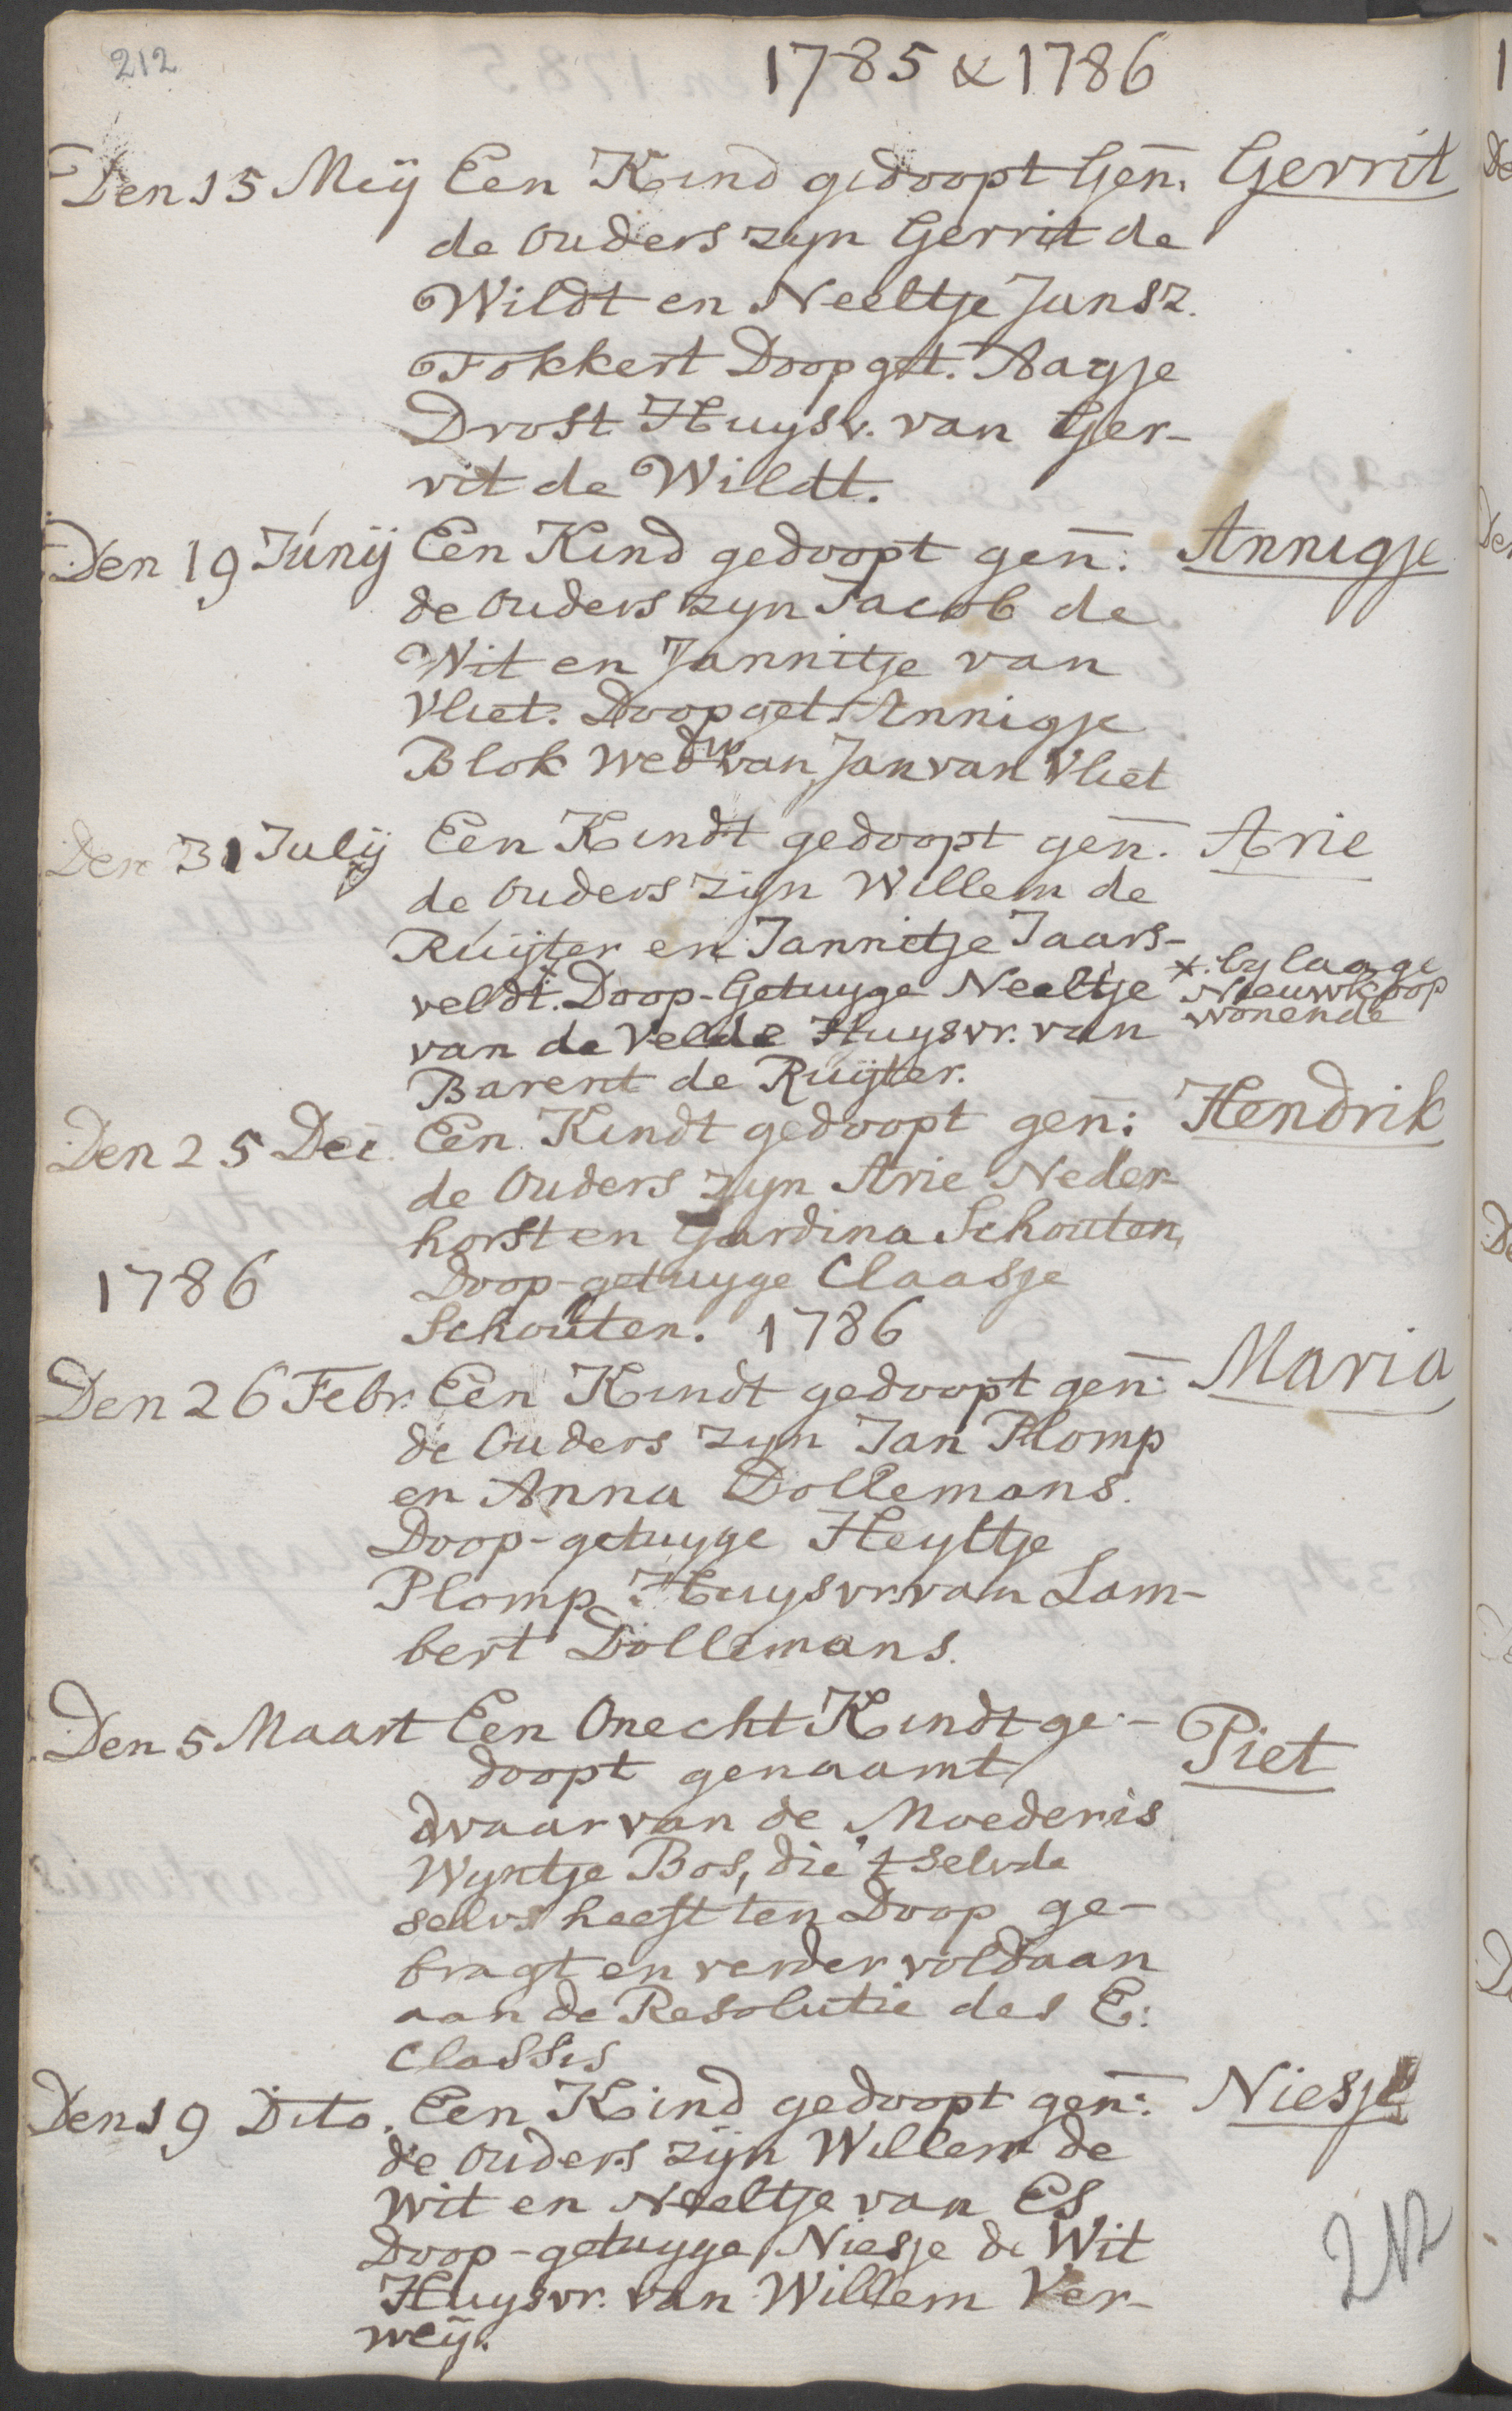 212
1785 & 1786
Den 15 Meij Een Kind gedoopt Gen̄. Gerrit
de Ouders zyn Gerrit de
Wildt en Neeltje Jansz.
Fokkert Doopget. Aagje
Drost Huysv. van Ger-
rit de Wildt.
Den 19 Junij Een Kind gedoopt gen̄: Annigje
de Ouders zyn Jacob de
Wit en Jannitje van
Vliet. Doopget. Annigje
Blok Wedw van Jan van Vliet
Den 31 Julij Een Kindt gedoopt gen̄. Arie
de Ouders zijn Willem de
Ruijter en Jannitje Jaars-
veldt. Doop-Getuyge Neeltje
*. by laage
Nieuwkoop
wonende
van de Velde Huysvr. van
Barent de Ruijter.
Den 25 Dec. Een Kindt gedoopt gen̄: Hendrik
de Ouders zyn Arie Neder-
horst en Gardina Schouten,
1786 Doop-getuyge Claasje
Schouten. 1786
Den 26 Febr. Een Kindt gedoopt gen̄: Maria
de Ouders zyn Jan Plomp
en Anna Dollemans.
Doop-getuyge Heyltje
Plomp Huysvr. van Lam-
bert Dollemans.
Den 5 Maart Een Onecht Kindt ge-
doopt genaamt Piet
waar van de Moeder is
Wyntje Bos, die 't selvde
selvs heeft ten Doop ge-
bragt en verder voldaan
aan de Resolutie des E:
Classis
Den 19 Dito. Een Kind gedoopt gen̄: Niesje
de Ouders zijn Willem de
Wit en Neeltje van Es
Doop-getuyge Niesje de Wit
Huysvr. van Willem Ver-
weij.
212